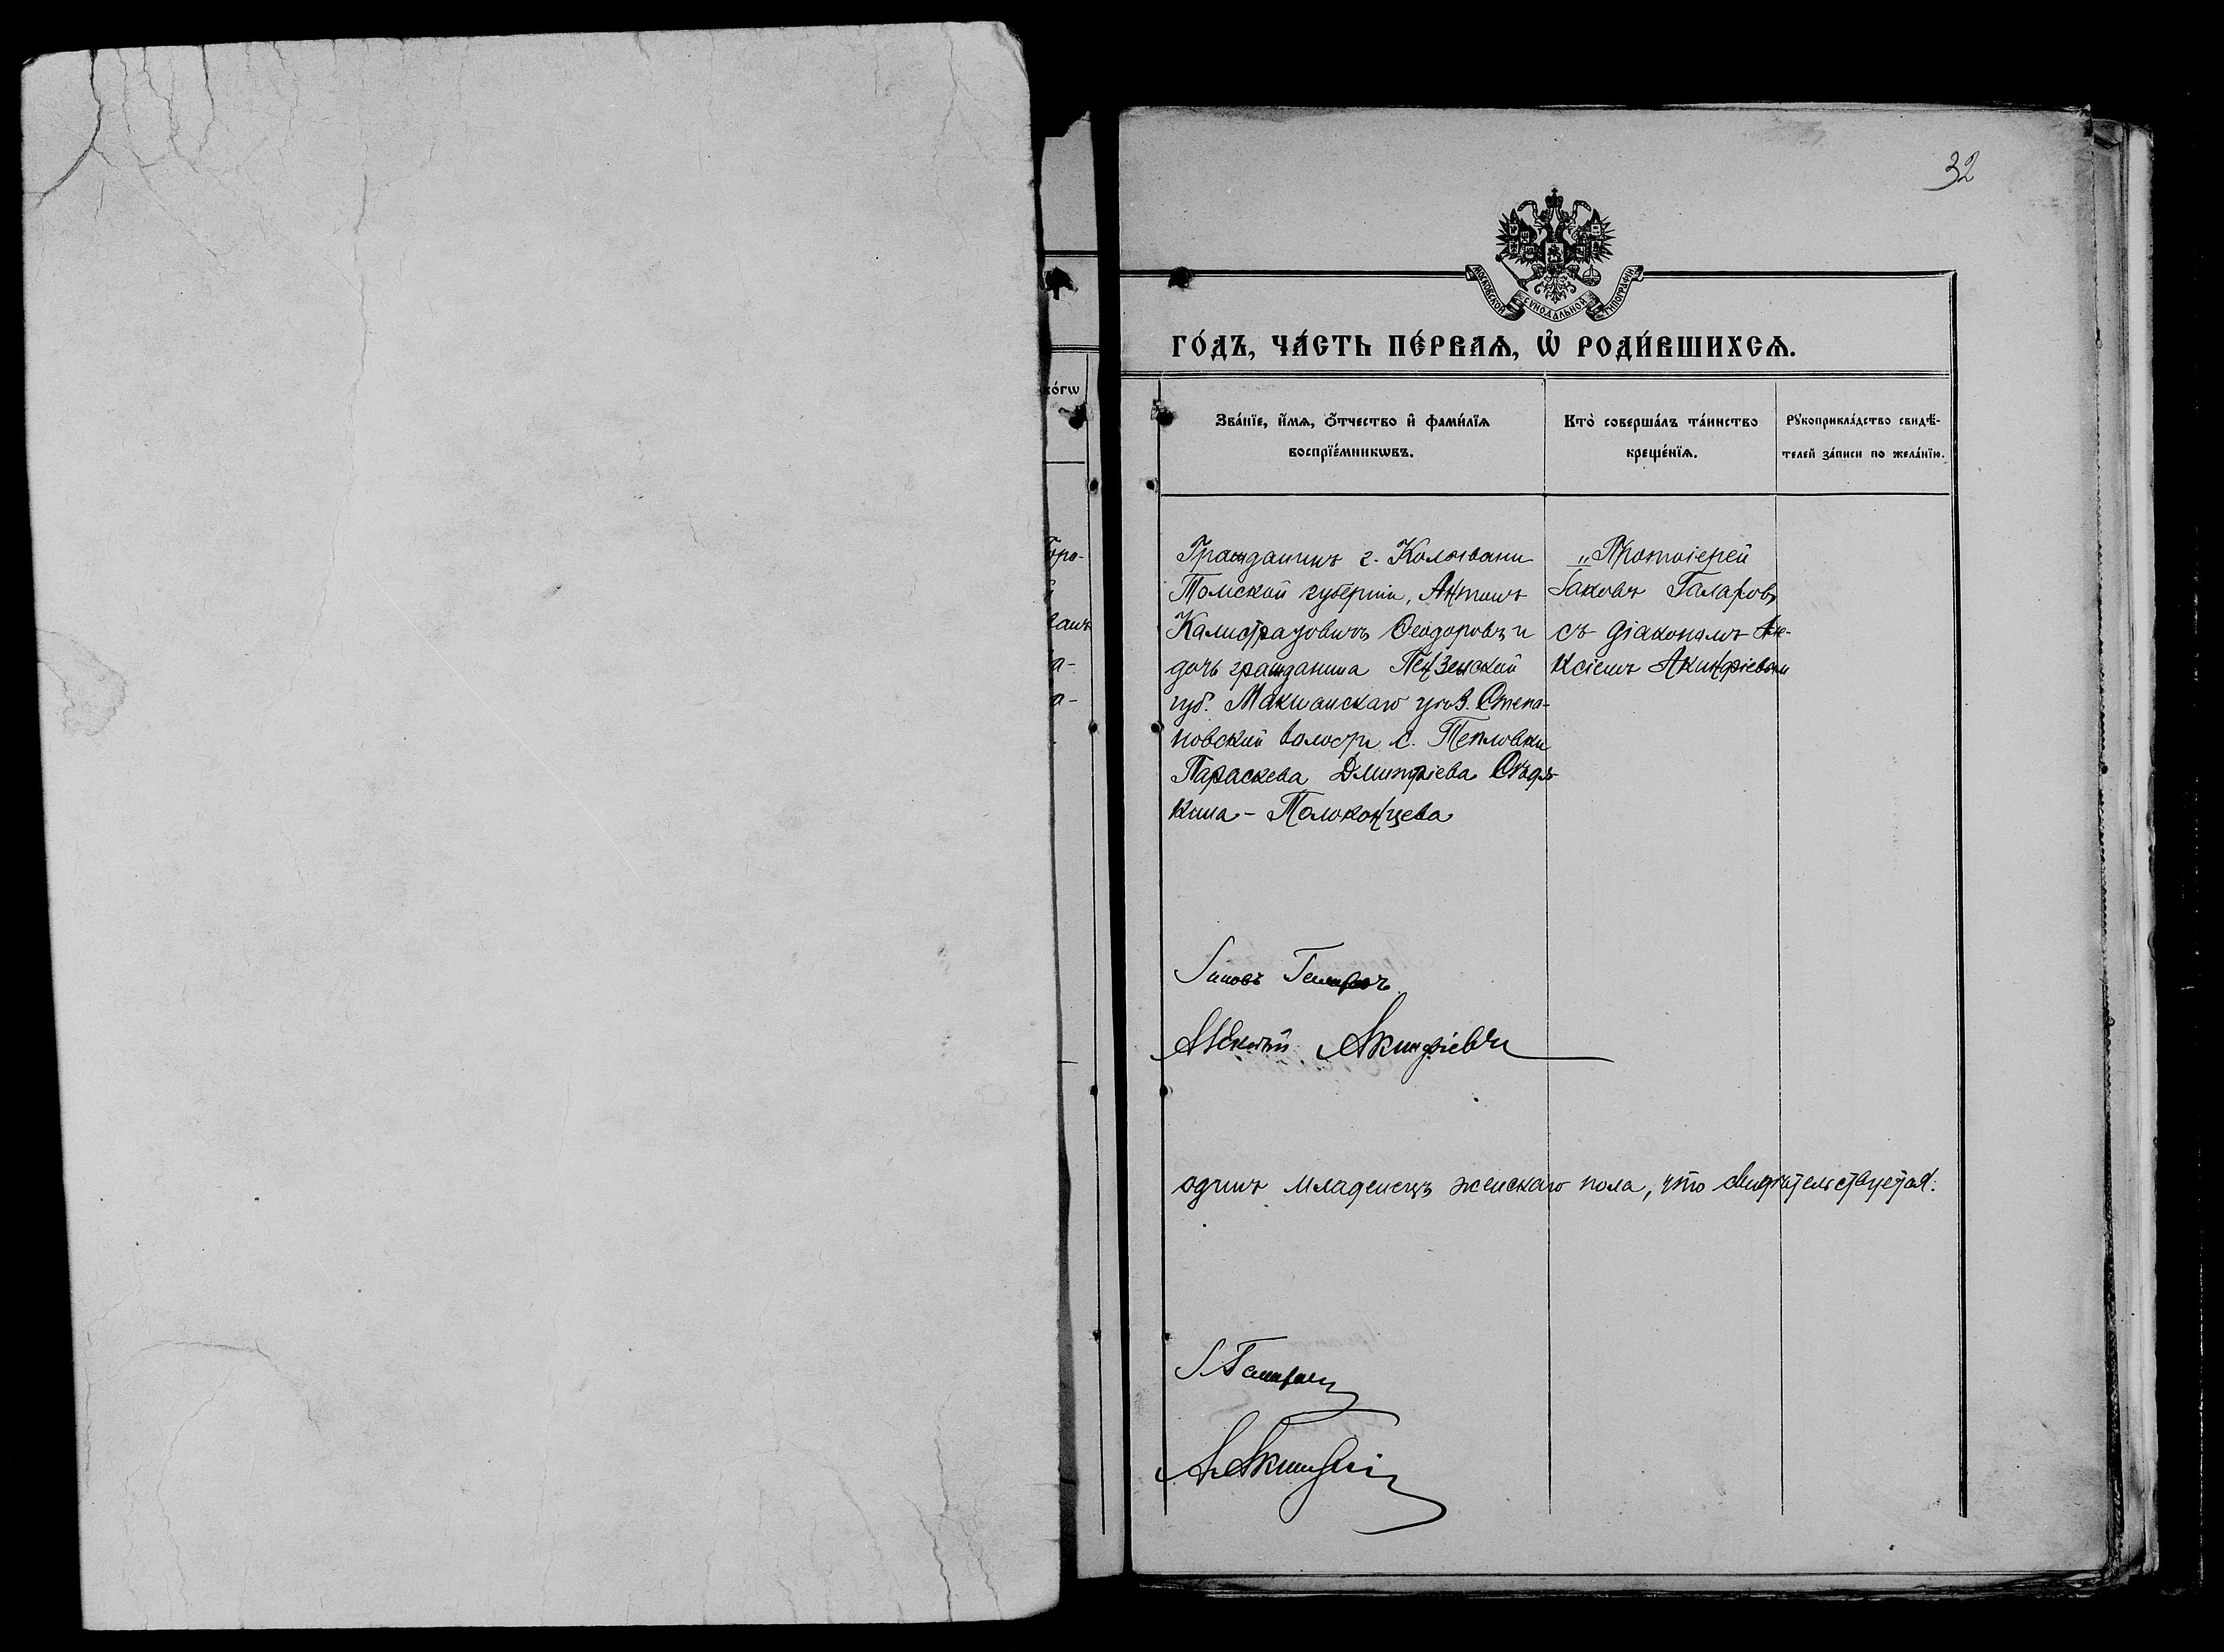 32
МОСКОВСКОЙ СѴНОДАЛЬНОЙ ТИПОГРАФІИ
ГО́ДЪ, ЧА́СТЬ ПЕ́РВАѦ, Ѡ҆ РОДИ́ВШИХСѦ.
кѡ́гѡ
Зва́нїе, и҆́мѧ, ѻ҆́тчество и҆ фами́лїѧ
воспрїе́мникѡвъ.
Кто̀ соверша́лъ та́инство
креще́нїѧ.
Рꙋкоприкла́дство свидѣ́-
телей за́писи по жела́нїю.
Гражданинъ г. Колывани
Томской губерніи, Антонъ
Калистратовичъ Ѳеодоровъ и
дочь гражданина Пензенской
губ. Макшанскаго уѣз. Степа-
новской волости с. Тепловки
Параскева Дмитріева
кина - Толоконцева
„Протоіерей
Іаковъ Галаховъ
съ діакономъ Але-
ксіемъ Акинфіевым
Іаковъ Галаховъ
Алексѣй Акинфіевъ
одинъ младенецъ женскаго пола, что свидѣтельствуется:
І. Галаховъ
А. Акинфіе